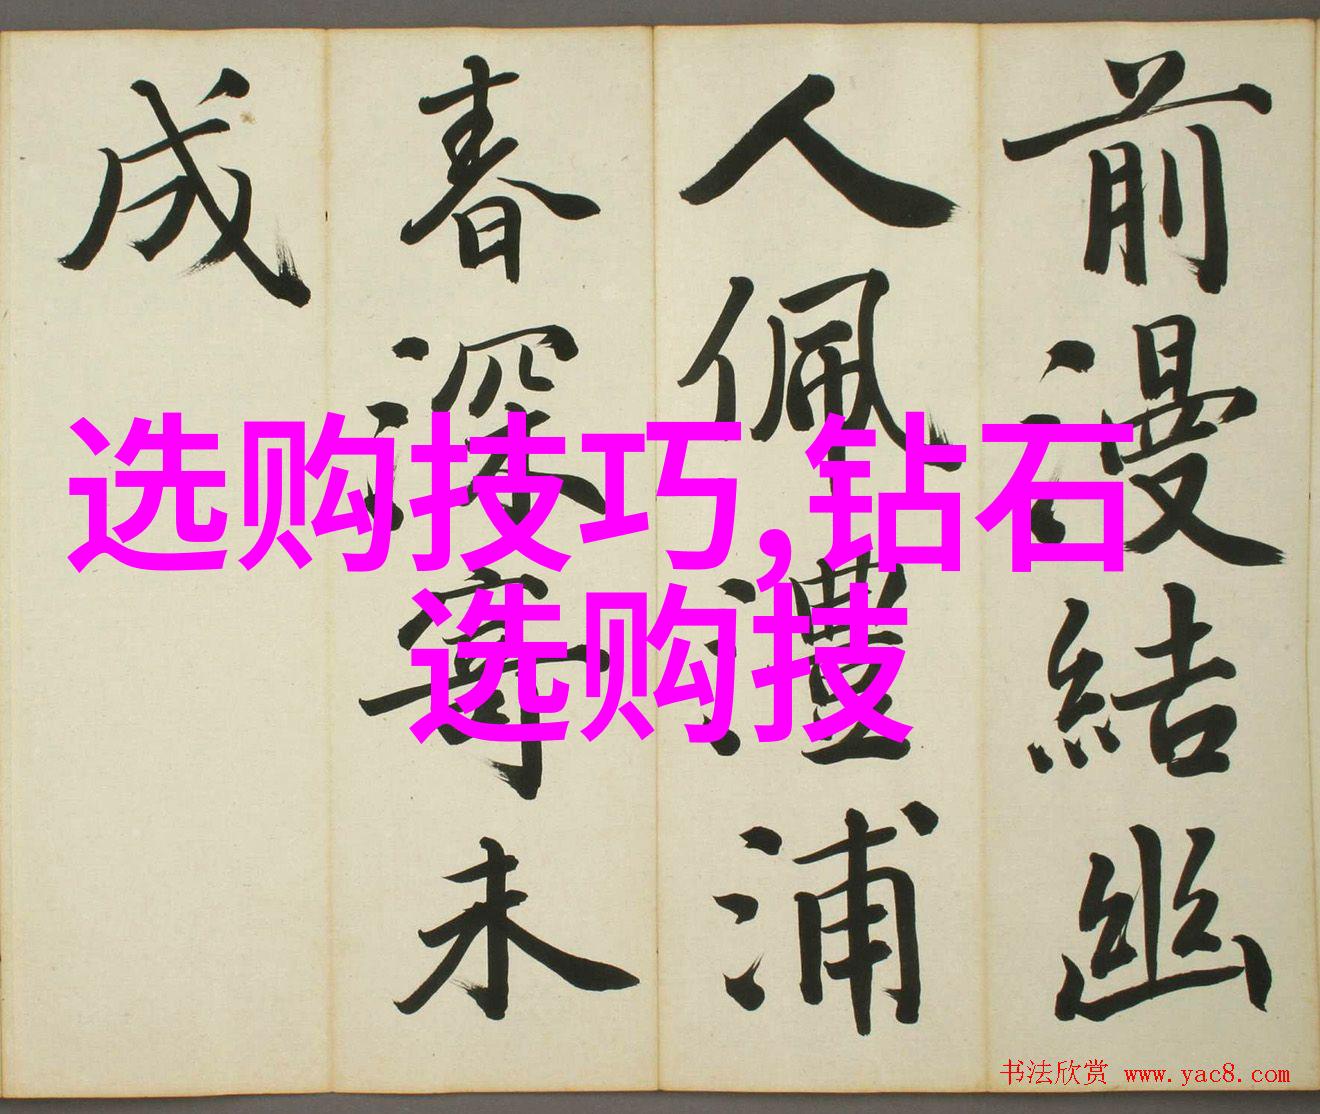 前漫結幽
人佩澧浦
春深寄未
成
选购技巧,钻石
选购技
书法欣赏 www.yac8.com